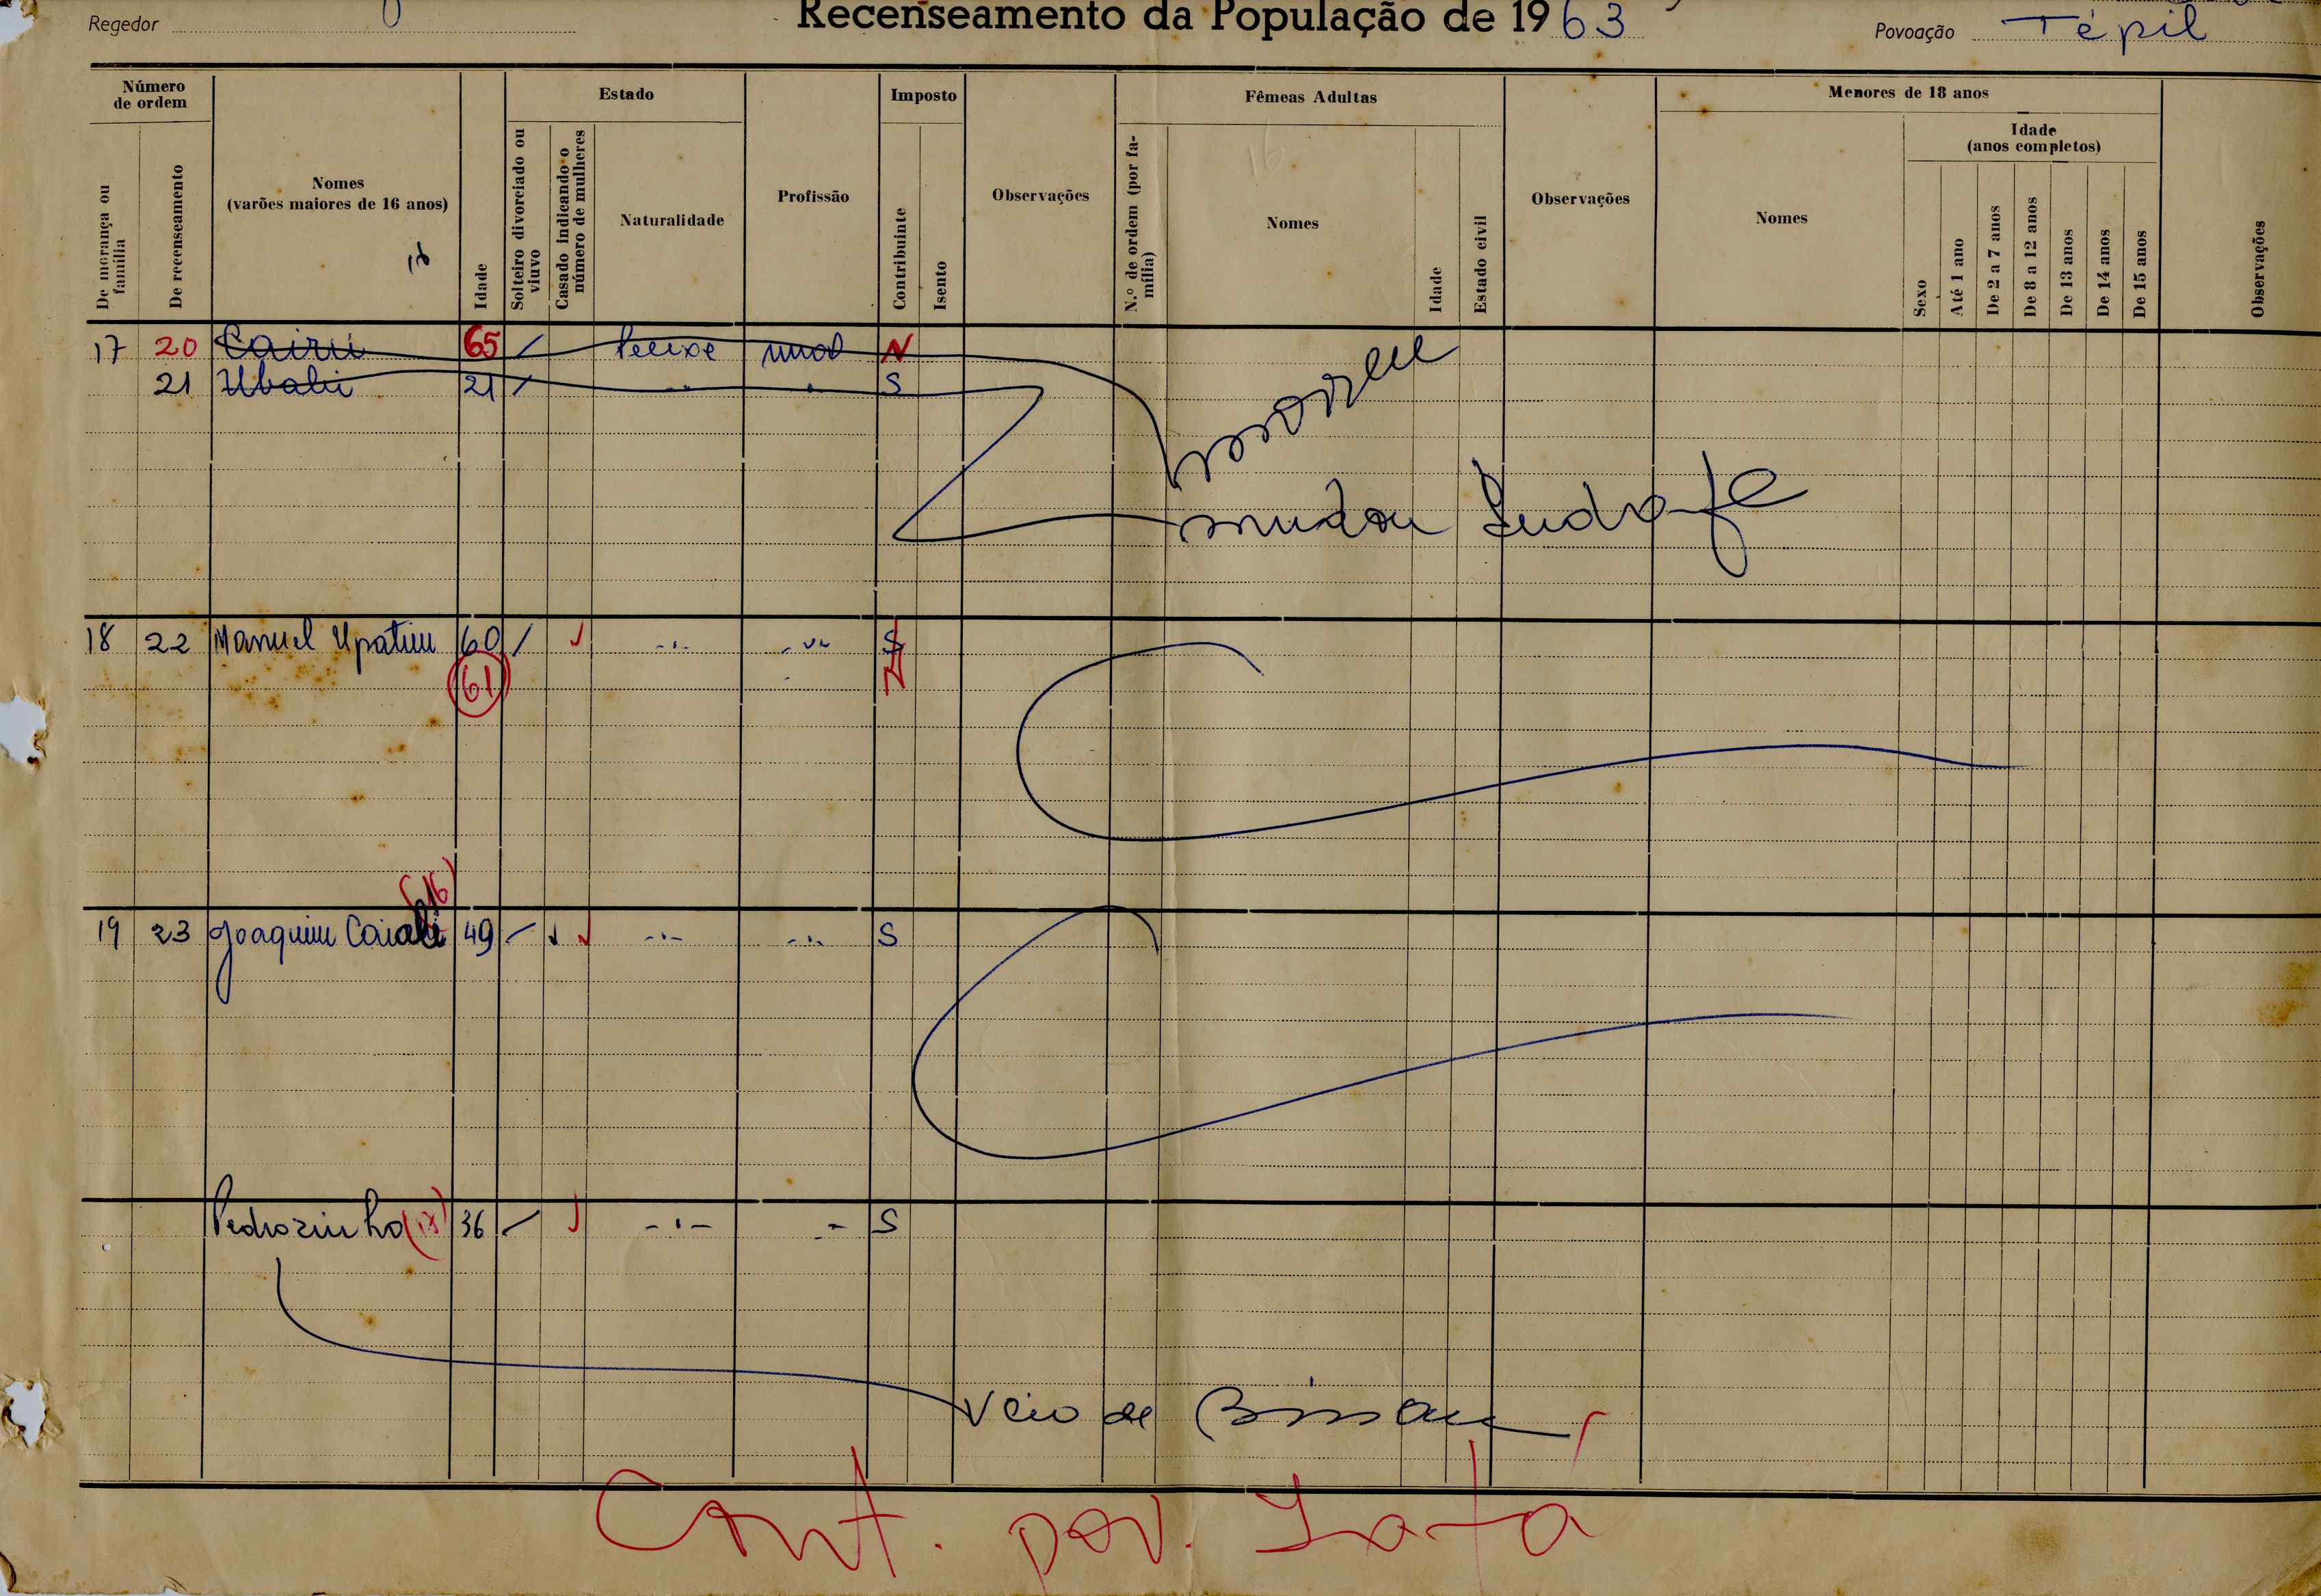 Regedor
Recenseamento da População de 1963
Povoação Tépil
Número de ordem
De morança ou família
De recenseamento
Nomes
(varões maiores de 16 anos)
Idade
Estado
Solteiro divorciado ou viuvo
Casado indicando o número de mulheres
Naturalidade
Profissão
Imposto
Contribuinte
Isento
Observações
Fêmeas Adultas
N.º de ordem (por família)
Nomes
Idade
Estado civil
Observações
Menores de 18 anos
Nomes
Idade
(anos completos)
Sexo
Até 1 ano
De 2 a 7 anos
De 8 a 12 anos
De 13 anos
De 14 anos
De 15 anos
Observações
17 20 65 N
21 21 S
morreu
mudou
18 22 Manuel Upatim 60 S
61 N
(16)
19 23 Joaquim Caiali 49 S
Pedrozinho (17) 36 S
Veio de Bissau
Cont. pov. Lata